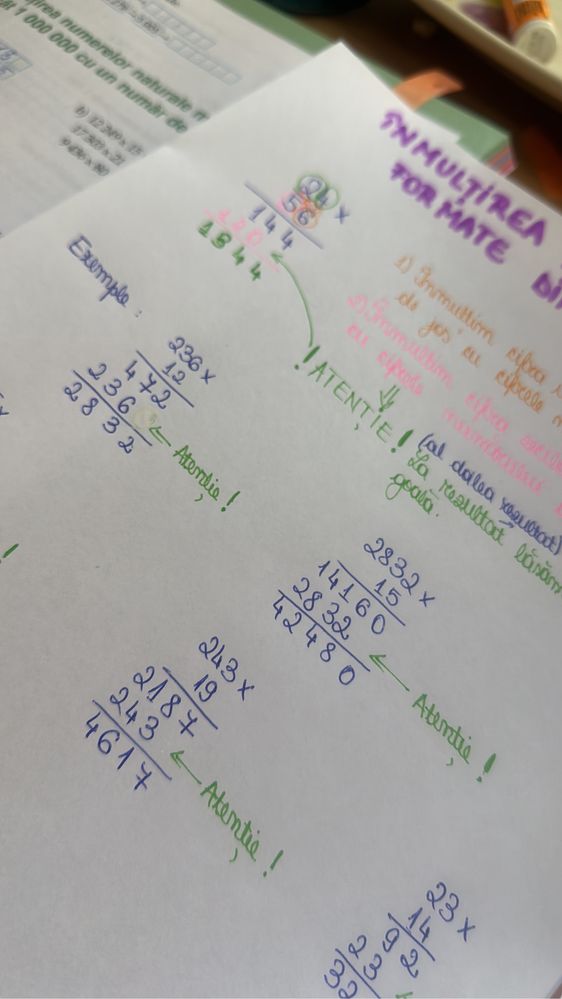 rea numerelor naturale
1 000 000 cu un număr de
ÎNMULȚIREA
FORMATE DI
24 x
56
144
120
1344
1) Înmulțim cifra
de jos cu cifrele
2) Înmulțim cifra
cu cifrele numărului
! ATENȚIE! (al doilea rezultat)
La rezultat lăsăm
goală.
Exemple:
236 x
12
472
236 ← Atenție!
2832
2832 x
15
14160
2832 ← Atenție!
42480
243 x
19
2187
243 ← Atenție!
4617
23 x
14
92
23
32